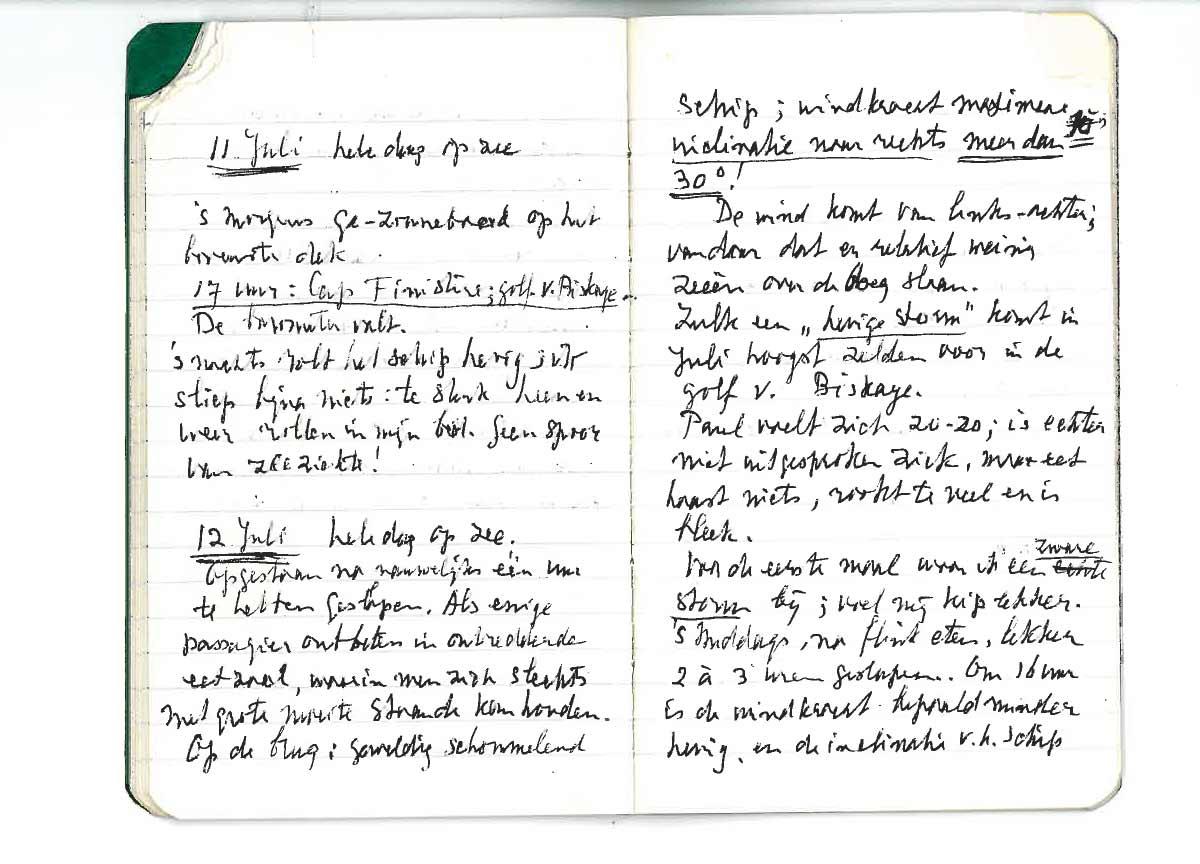 11 Juli hele dag op zee
's morgens ge-zonnebaad op het
bovenste dek.
17 uur: Cap Finistère; golf v. Biskaye.
De barometer valt.
's nachts rolt het schip hevig; ik
sliep bijna niets: te sterk heen en
weer rollen in mijn bed. Geen spoor
van zeeziekte!
12 Juli hele dag op zee.
Opgestaan na nauwelijks één uur
te hebben geslapen. Als enige
passagier ontbeten in ontredderde
eetzaal, waarin men zich slechts
met grote moeite staande kan houden.
Op de brug: geweldig schommelend
schip; windkracht maximaal
inclinatie naar rechts meer dan
30°!
De wind komt van links-achter;
vandaar dat er relatief weinig
zeeën over de boeg slaan.
Zulk een „hevige storm" komt in
Juli hoogst zelden voor in de
golf v. Biskaye.
Paul voelt zich zo-zo; is echter
niet uitgesproken ziek, maar eet
haast niets, rookt te veel en is
bleek.
Voor de eerste maal woon ik een zware
storm bij; voel mij kiplekker.
's Middags, na flink eten, lekker
2 à 3 uren geslapen. Om 16 uur
is de windkracht bepaald minder
hevig, en de inclinatie v.h. schip